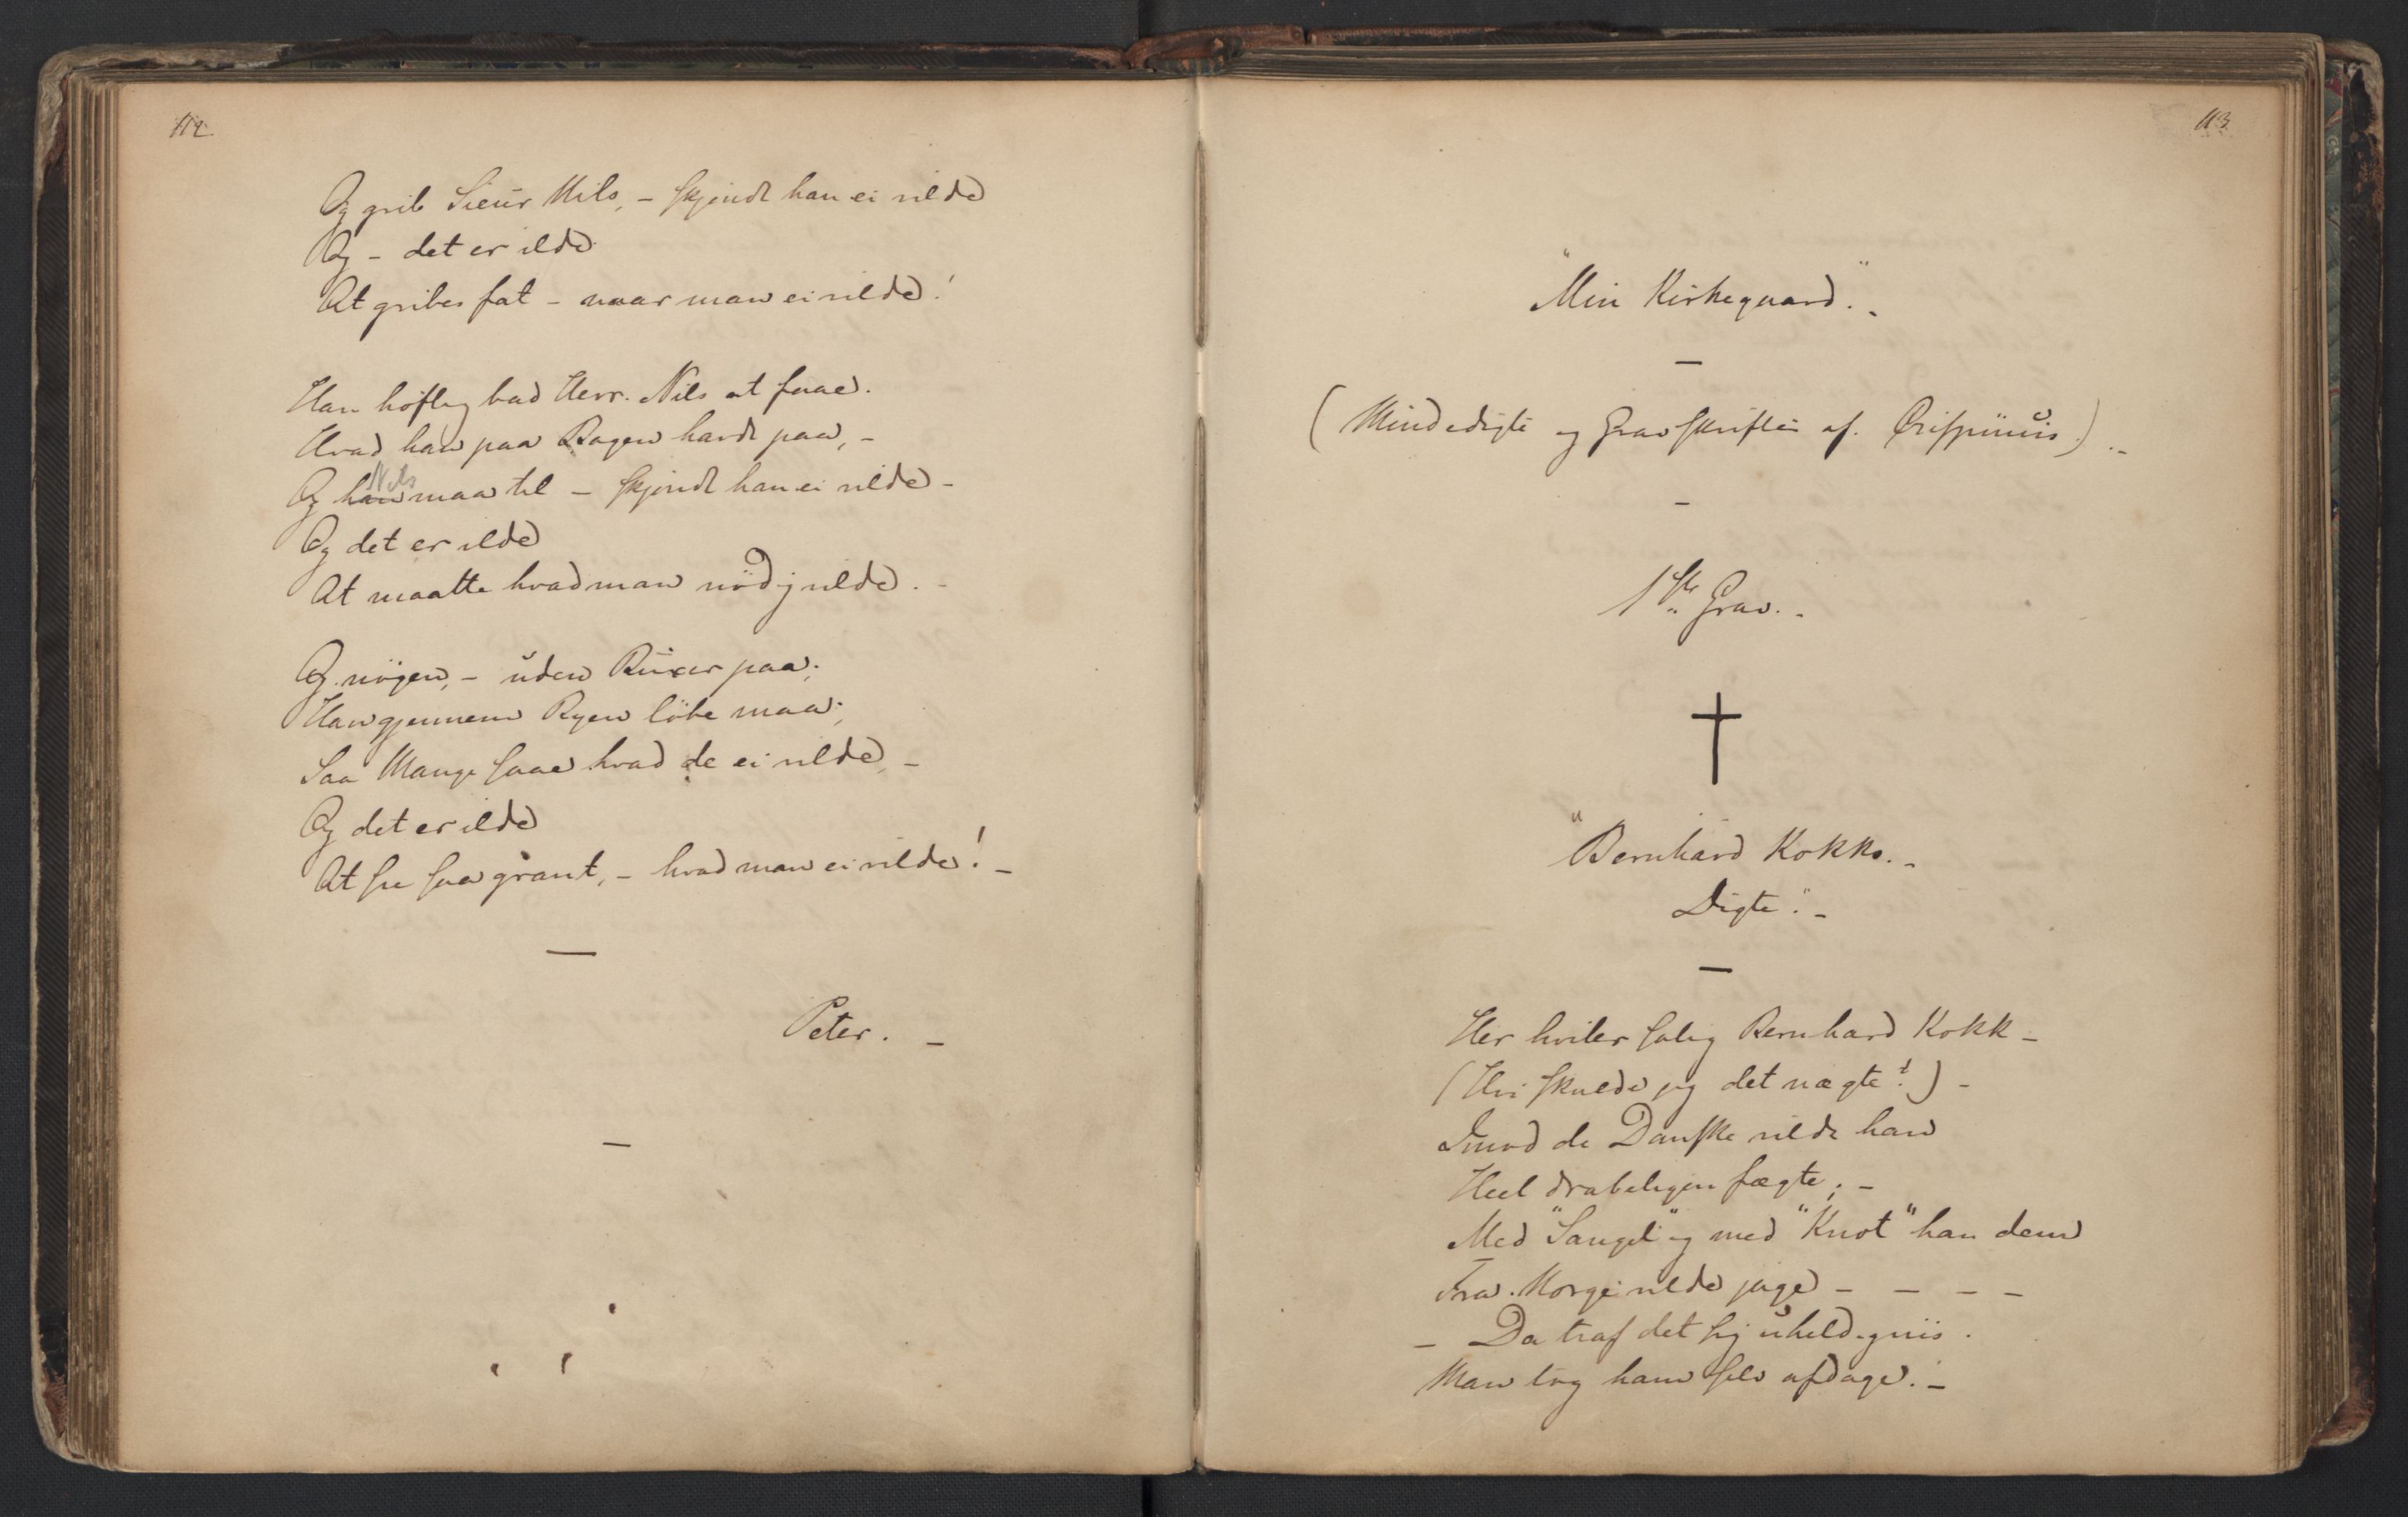 112.
Og greb Sieur Nils, – skjøndt han ei vilde
Og – det er ilde
At gribes fat – naar man ei vilde!
Han høflig bad Herr. Nils at faae.
Hvad han paa Bagen havde paa, –
Og han maa til – skjøndt han ei vilde –
Nils
Og det er ilde
At maatte hvad man nödig vilde. –
Og nögen, – uden Buxer paa;
Han gjennem Byen löbe maa;
Saa Mange saae hvad de ei vilde, –
Og det er ilde
At see saa grant, – hvad man ei vilde! –
Peter. –
113
"Min Kirkegaard." –
(Mindedigte og Gravskrifter af. Crispinus.) . –
1ste Grav. –
"Bernhard Kokks. –
Digte". –
Her hviler salig Bernhard Kokk –
(Hvi skulde jeg det nægte?) –
Imod de Danske vilde han
Heel drabeligen fægte; –
Med "Sangel" og med "Knot" han dem
Fra. Norge vilde jage – – – –
– Da traf det sig uheldigviis.
Man tog ham selv afdage. –